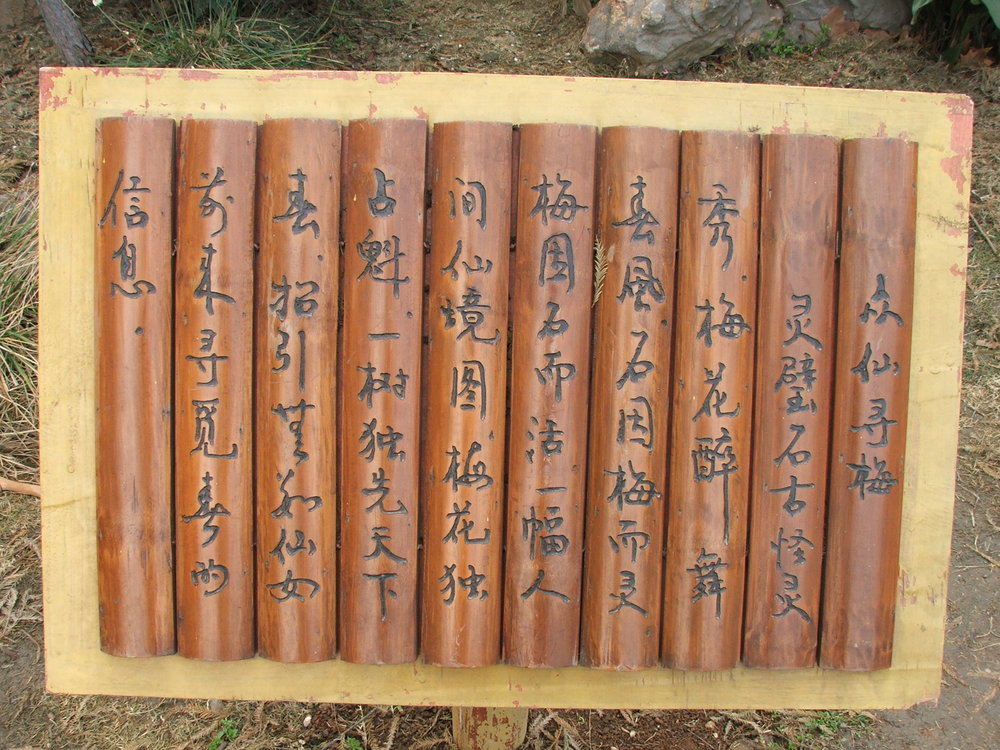 众仙寻梅
灵璧石古怪灵
秀梅花醉舞
春風石因梅而灵
梅因石而活一幅人
间仙境图梅花独
占魁一树独先天下
春.招引無数仙女
前来寻觅春的
信息.